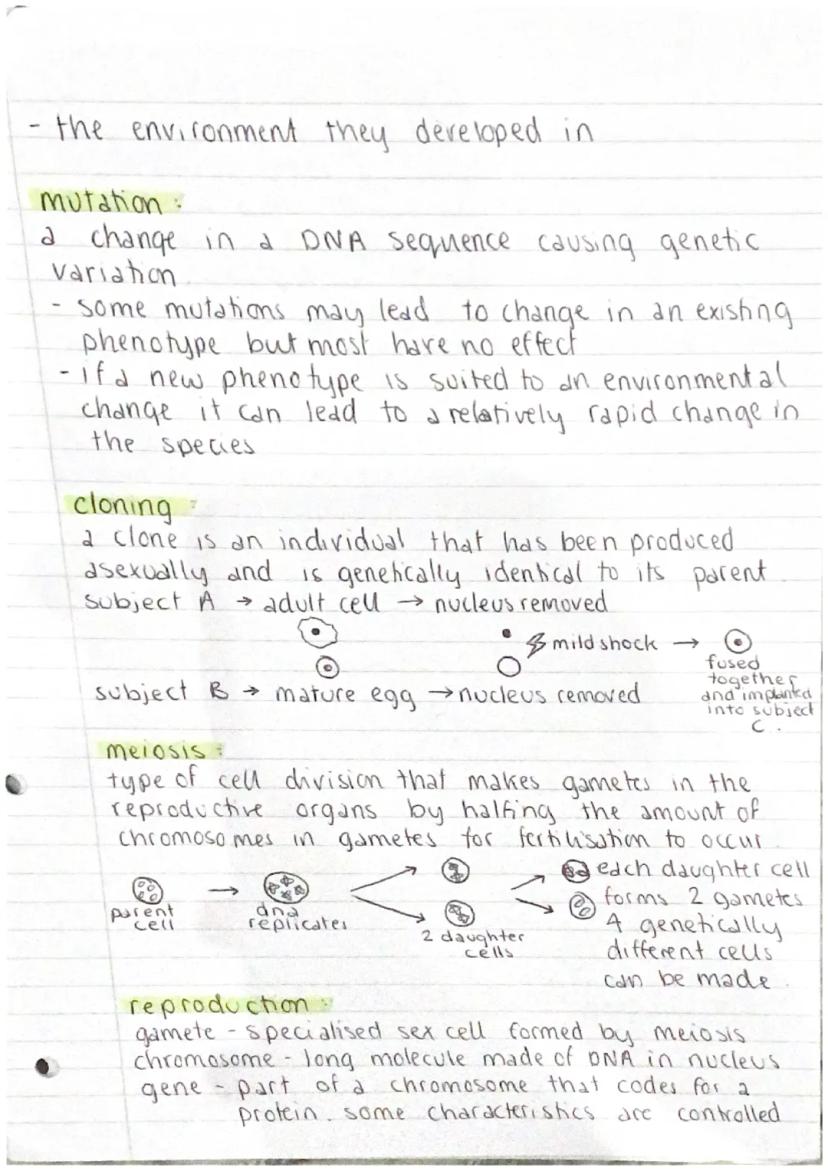 - the environment they developed in
mutation:
a change in a DNA sequence causing genetic
variation.
- some mutations may lead to change in an existing
phenotype but most have no effect
- if a new phenotype is suited to an environmental
change it can lead to a relatively rapid change in
the species
cloning:
a clone is an individual that has been produced
asexually and is genetically identical to its parent.
subject A → adult cell → nucleus removed
mild shock →
fused
together
and implanted
into subject
C.
subject B → mature egg → nucleus removed
meiosis:
type of cell division that makes gametes in the
reproductive organs by halfing the amount of
chromosomes in gametes for fertilisation to occur.
parent
cell
→
dna
replicates
2 daughter
cells
each daughter cell
forms 2 gametes
4 genetically
different cells
can be made.
reproduction:
gamete - specialised sex cell formed by meiosis
chromosome - long molecule made of DNA in nucleus
gene - part of a chromosome that codes for a
protein. some characteristics are controlled